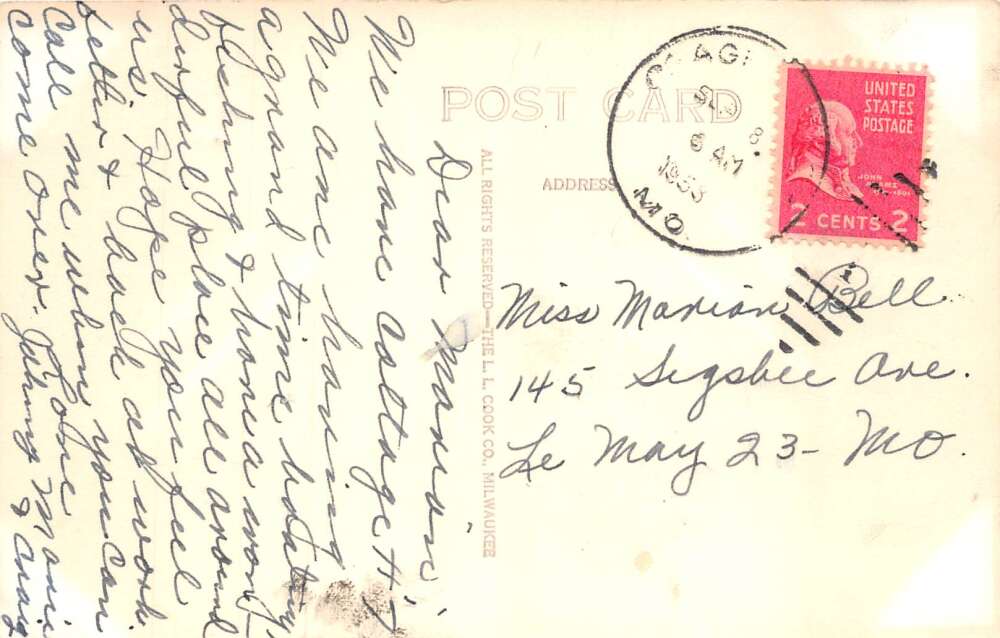 POST CARD
ADDRESS
ALL RIGHTS RESERVED—THE L. L. COOK CO., MILWAUKEE
8
6 AM
1953
MO.
UNITED
STATES
POSTAGE
JOHN
ADAMS
2 CENTS 2
Dear Marion,
We have cottage #1
We are having
a grand time boating,
fishing & have a won-
derful place all around
us. Hope you feel
better & back at work.
Call me when you can
come over. Love
Johnny Marie
& Craig
Miss Marion Bell
145 Sigsbee Ave.
Le May 23- Mo.